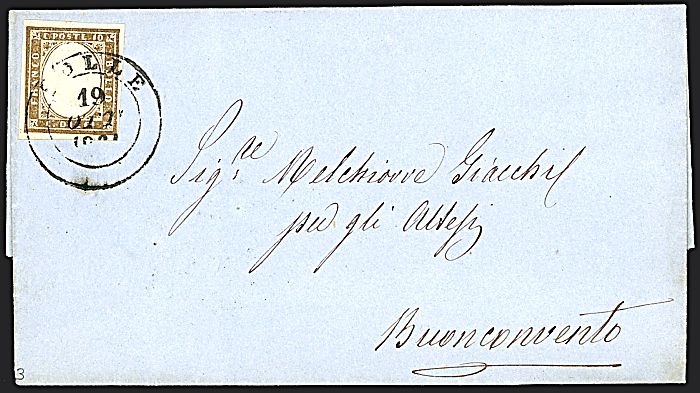 C. POSTE 10
FRANCO
BOLLO
COLLE
19
OTT
Sig.re Melchiorre Giacchi
per gli Altesi
Buonconvento
3